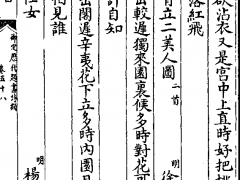 欲沾衣又是宮中上直時好把桃
落紅飛
自立二美人圖二首 明 徐
出較遲獨來園裏候多時對花可
計自知
出閣遲辛夷花下立多時内園日
相見誰
仕女 明 楊
御定歷代題畫詩類 卷五十八